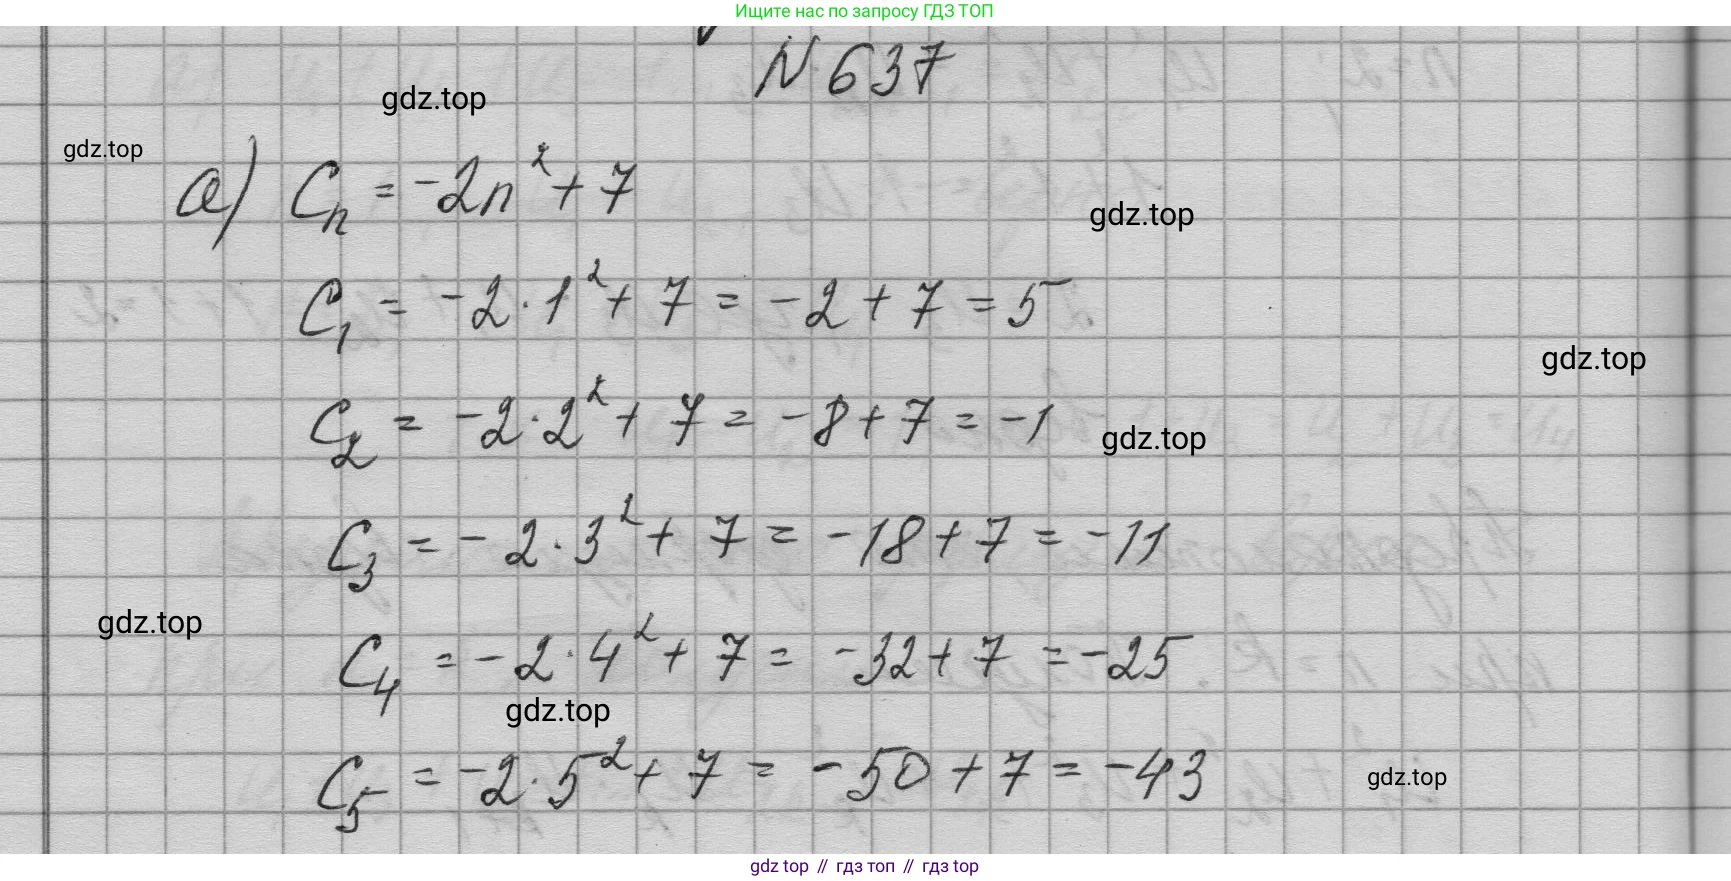 Ищите нас по запросу ГДЗ ТОП
N 637
gdz.top
gdz.top
а) Cₙ = -2n² + 7
gdz.top
C₁ = -2·1² + 7 = -2 + 7 = 5
gdz.top
C₂ = -2·2² + 7 = -8 + 7 = -1
gdz.top
C₃ = -2·3² + 7 = -18 + 7 = -11
gdz.top
C₄ = -2·4² + 7 = -32 + 7 = -25
gdz.top
C₅ = -2·5² + 7 = -50 + 7 = -43
gdz.top
gdz top // гдз топ // гдз top